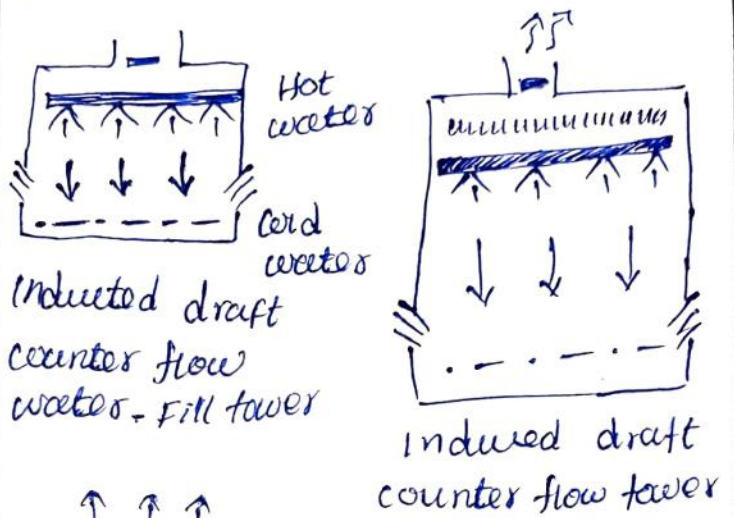 Hot
water
Cold
water
Inducted draft
counter flow
water - Fill tower
Induced draft
counter flow tower